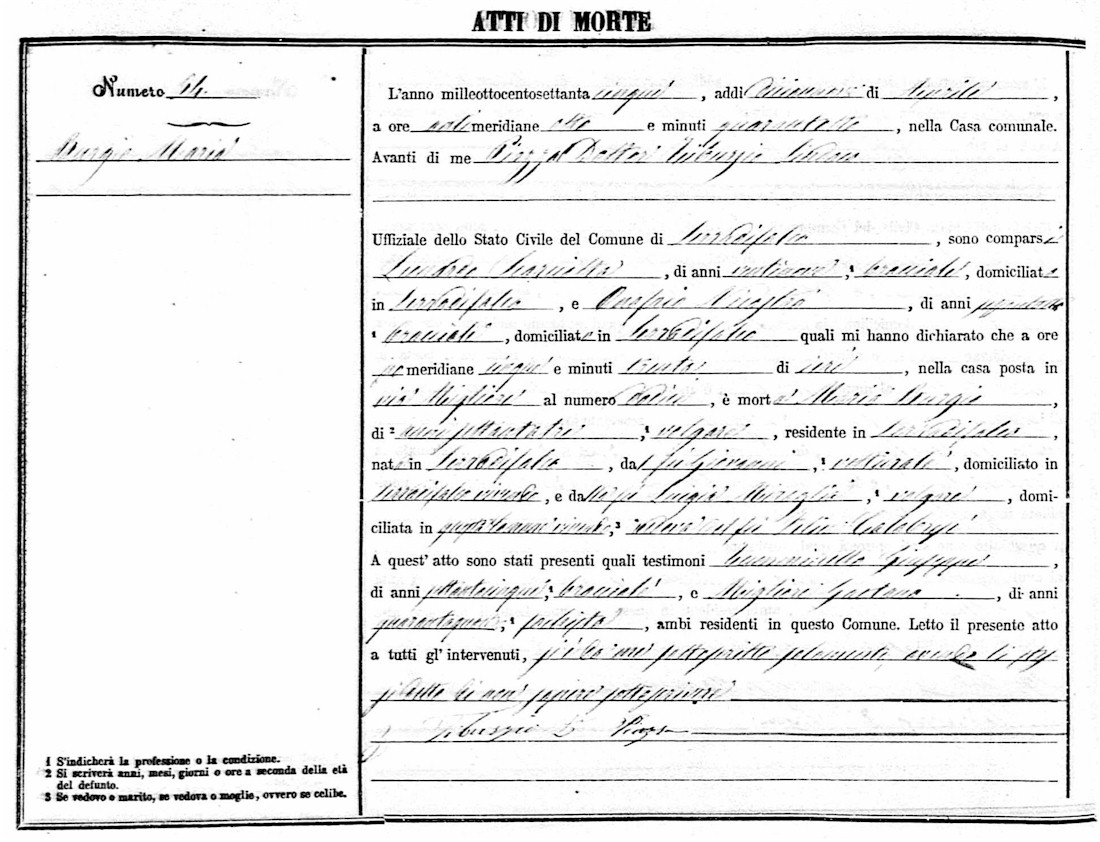 ATTI DI MORTE
Numero 64.
Burgio Maria
L'anno milleottocentosettanta cinque, addì di Aprile,
a ore anti meridiane otto e minuti, nella Casa comunale.
Avanti di me Piazza Dottor Tiburzio
Uffiziale dello Stato Civile del Comune di Serradifalco, sono comparsi
, di anni ventinove, ¹ bracciale, domiciliato
in Serradifalco, e Onofrio, di anni
¹ bracciale, domiciliato in Serradifalco quali mi hanno dichiarato che a ore
po meridiane cinque e minuti trenta di ieri, nella casa posta in
via Migliore al numero dodici, è morta Maria Burgio,
di ² anni settantatre, ¹ volgare, residente in Serradifalco,
nata in Serradifalco, dal fu Giovanni, ¹ vetturale, domiciliato in
Serradifalco vivendo, e dalla fu Luigia, ¹ volgare, domi-
ciliata in vivendo, ³ vedova del fu Calabrese
A quest' atto sono stati presenti quali testimoni Giuseppe,
di anni, ¹ bracciale, e Migliore Gaetano, di anni
, ¹, ambi residenti in questo Comune. Letto il presente atto
a tutti gl' intervenuti, si è da me sottoscritto solamente, avendo li
detto di non sapere sottoscrivere
Tiburzio D. Piazza
1 S'indicherà la professione o la condizione.
2 Si scriverà anni, mesi, giorni o ore a seconda della età
del defunto.
3 Se vedovo o marito, se vedova o moglie, ovvero se celibe.